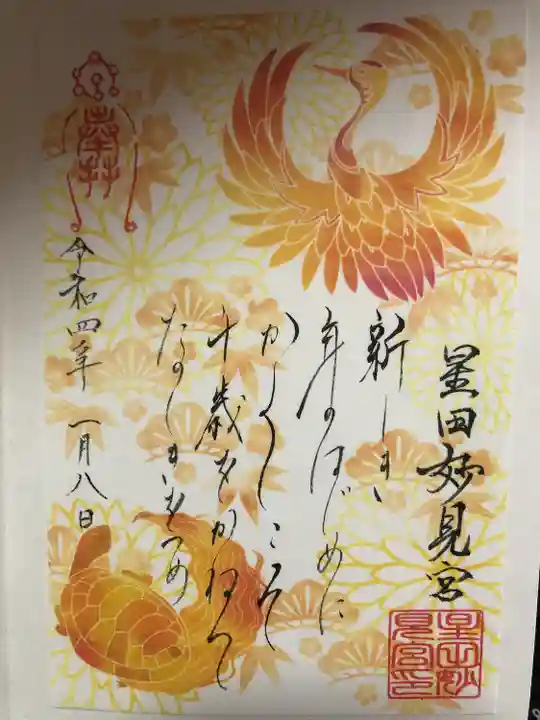 星田妙見宮
新しき
年のはじめに
かくしこそ
千歳をかねて
たのしきをつめ
令和四年 一月八日
星田妙
見宮印